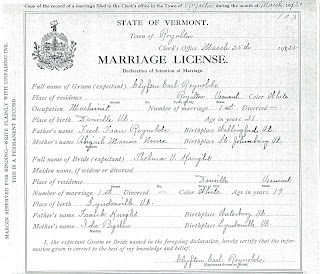 Copy of the record of a marriage filed in the Clerk's office in the Town of Royalton during the month of March, 192
STATE OF VERMONT.
Town of Royalton
Clerk's Office March 25th 192
MARRIAGE LICENSE.
Declaration of Intention of Marriage.
Full name of Groom (expectant) Clyfton Earl Reynolds
Place of residence Royalton Vermont Color White
Occupation Machinist Number of marriage 1st Divorced —
Place of birth Danville Vt. Age in years 21
Father's name Fred Reynolds Birthplace Wallingford Vt.
Mother's name Abigail Birthplace St. Johnsbury Vt.
Full name of Bride (expectant) Thelma V. Knight
Maiden name, if widow or divorced
Place of residence Danville Vermont
Number of marriage 1st Divorced — Color White Age in years 19
Place of birth Lyndonville Vt.
Father's name Frank Knight Birthplace Waterbury Vt.
Mother's name Ida Birthplace Lyndonville Vt.
I, the expectant Groom or Bride named in the foregoing declaration, hereby certify that the information given is correct to the best of my knowledge and belief.
Clyfton Earl Reynolds
(Expectant Groom or Bride)
MARGIN RESERVED FOR BINDING—WRITE PLAINLY WITH UNFADING INK.
THIS IS A PERMANENT RECORD.